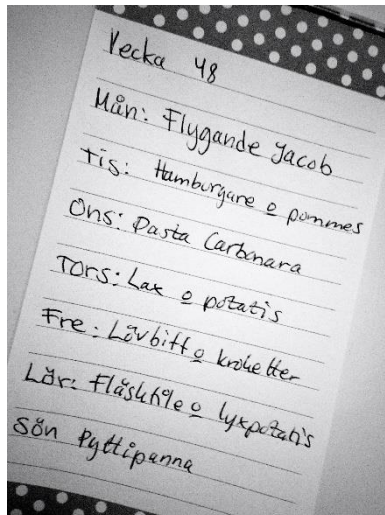 Vecka 48
Mån: Flygande Jacob
Tis: Hamburgare o pommes
Ons: Pasta Carbonara
Tors: Lax o potatis
Fre: Lövbiff o kroketter
Lör: Fläskfile o lyxpotatis
Sön Pyttipanna